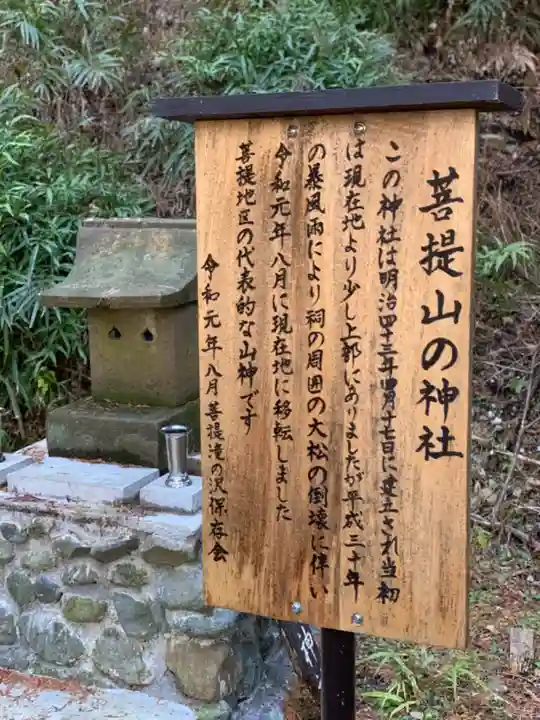 菩提山の神社
この神社は明治四十三年四月十七日に建立され当初
は現在地より少し上部にありましたが平成三十年
の暴風雨により祠の周囲の大松の倒壊に伴い
令和元年八月に現在地に移転しました
菩提地区の代表的な山神です
令和元年八月 菩提滝の沢保存会